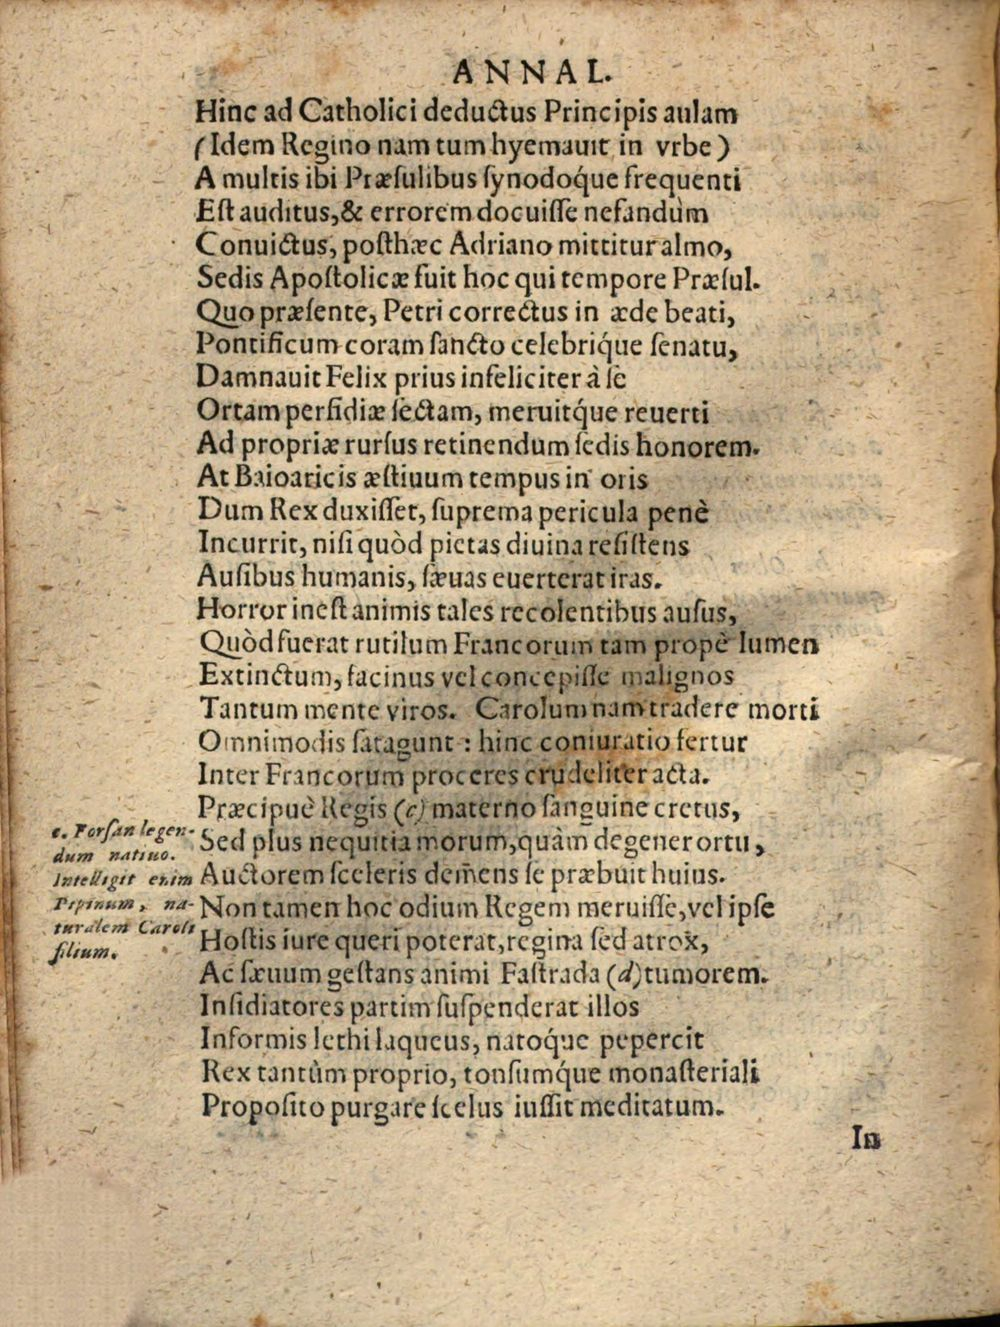 ANNAL.
Hinc ad Catholici deductus Principis aulam
(Idem Regino nam tum hyemauit in vrbe)
A multis ibi Præsulibus synodoq́ue frequenti
Est auditus,& errorem docuisse nefandùm
Conuictus, posthæc Adriano mittitur almo,
Sedis Apostolicæ fuit hoc qui tempore Præsul.
Quo præsente, Petri correctus in æde beati,
Pontificum coram sancto celebriq́ue senatu,
Damnauit Felix prius infeliciter à se
Ortam perfidiæ sectam, meruitq́ue reuerti
Ad propriæ rursus retinendum sedis honorem.
At Baioaricis æstiuum tempus in oris
Dum Rex duxisset, suprema pericula penè
Incurrit, nisi quòd pietas diuina resistens
Ausibus humanis, sæuas euerterat iras.
Horror inest animis tales recolentibus ausus,
Quòd fuerat rutilum Francorum tam propè lumen
Extinctum, facinus vel concepisse malignos
Tantum mente viros. Carolum nam tradere morti
Omnimodis satagunt : hinc coniuratio fertur
Inter Francorum proceres crudeliter acta.
Præcipuè Regis (c) materno sanguine cretus,
Sed plus nequitia morum,quàm degener ortu,
Auctorem sceleris demens se præbuit huius.
Non tamen hoc odium Regem meruisse,vel ipse
Hostis iure queri poterat,regina sed atrox,
Ac sæuum gestans animi Fastrada (d) tumorem.
Insidiatores partim suspenderat illos
Informis lethi laqueus, natoq́ue pepercit
Rex tantùm proprio, tonsumq́ue monasteriali
Proposito purgare scelus iussit meditatum.
In
c. Forsan legen-
dum natiuo.
Intelligit enim
Pipinum, na-
turalem Caroli
filium.